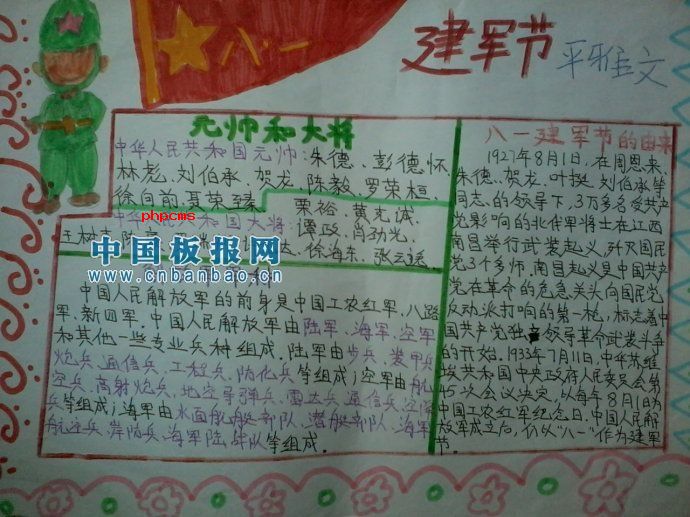 八一
建军节
平雅文
元帅和大将
中华人民共和国元帅:朱德、彭德怀
林彪、刘伯承、贺龙、陈毅、罗荣桓、
徐向前、聂荣臻
中华人民共和国大将
粟裕、黄克诚
谭政、肖劲光、
徐海东、张云逸
phpcms
中国板报网
www.cnbanbao.cn
中国人民解放军的前身是中国工农红军、八路
军、新四军。中国人民解放军由陆军、海军、空军
和其他一些专业兵种组成。陆军由步兵、装甲兵
炮兵、通信兵、工程兵、防化兵等组成;空军由航
空兵、高射炮兵、地空导弹兵、雷达兵、通信兵、空降
兵等组成;海军由水面舰艇部队、潜艇部队、海军
航空兵、岸防兵、海军陆战队等组成。
八一建军节的由来
1927年8月1日,在周恩来、
朱德、贺龙、叶挺、刘伯承等
同志的领导下,3万多名受共产
党影响的北伐军将士在江西
南昌举行武装起义,歼灭国民
党3个多师。南昌起义是中国共产
党在革命的危急关头向国民党
反动派打响的第一枪,标志着中
国共产党独立领导革命武装斗争
的开始。1933年7月11日,中华苏维
埃共和国中央政府人民委员会第
15次会议决定,以每年8月1日为
中国工农红军纪念日。中国人民解
放军成立后,仍以“八一”作为建军
节。